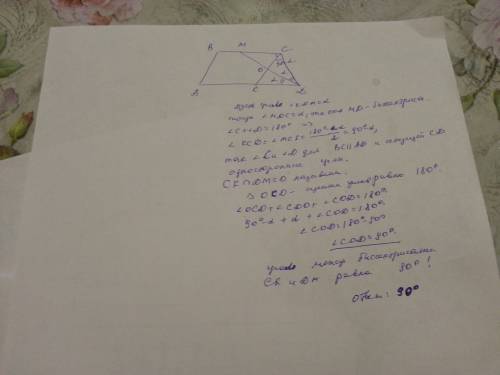 B M C
O
A K D
пусть угол ∠KDM=α
тогда ∠MDC=α, так как MD - биссектриса.
∠C+∠D=180° ⇒
∠KCD=∠MCK= (180°-2α)/2 =90°-α,
так ∠C и ∠D для BC||AD и секущей CD
односторонние углы.
CK∩DM=O назовем.
△OCD - сумма углов равна 180°.
∠OCD+∠CDO+∠COD=180°
90°-α+α+∠COD=180°
∠COD=180°-90°
∠COD=90°
угол между биссектрисами
CK и DM равна 90°!
Ответ: 90°